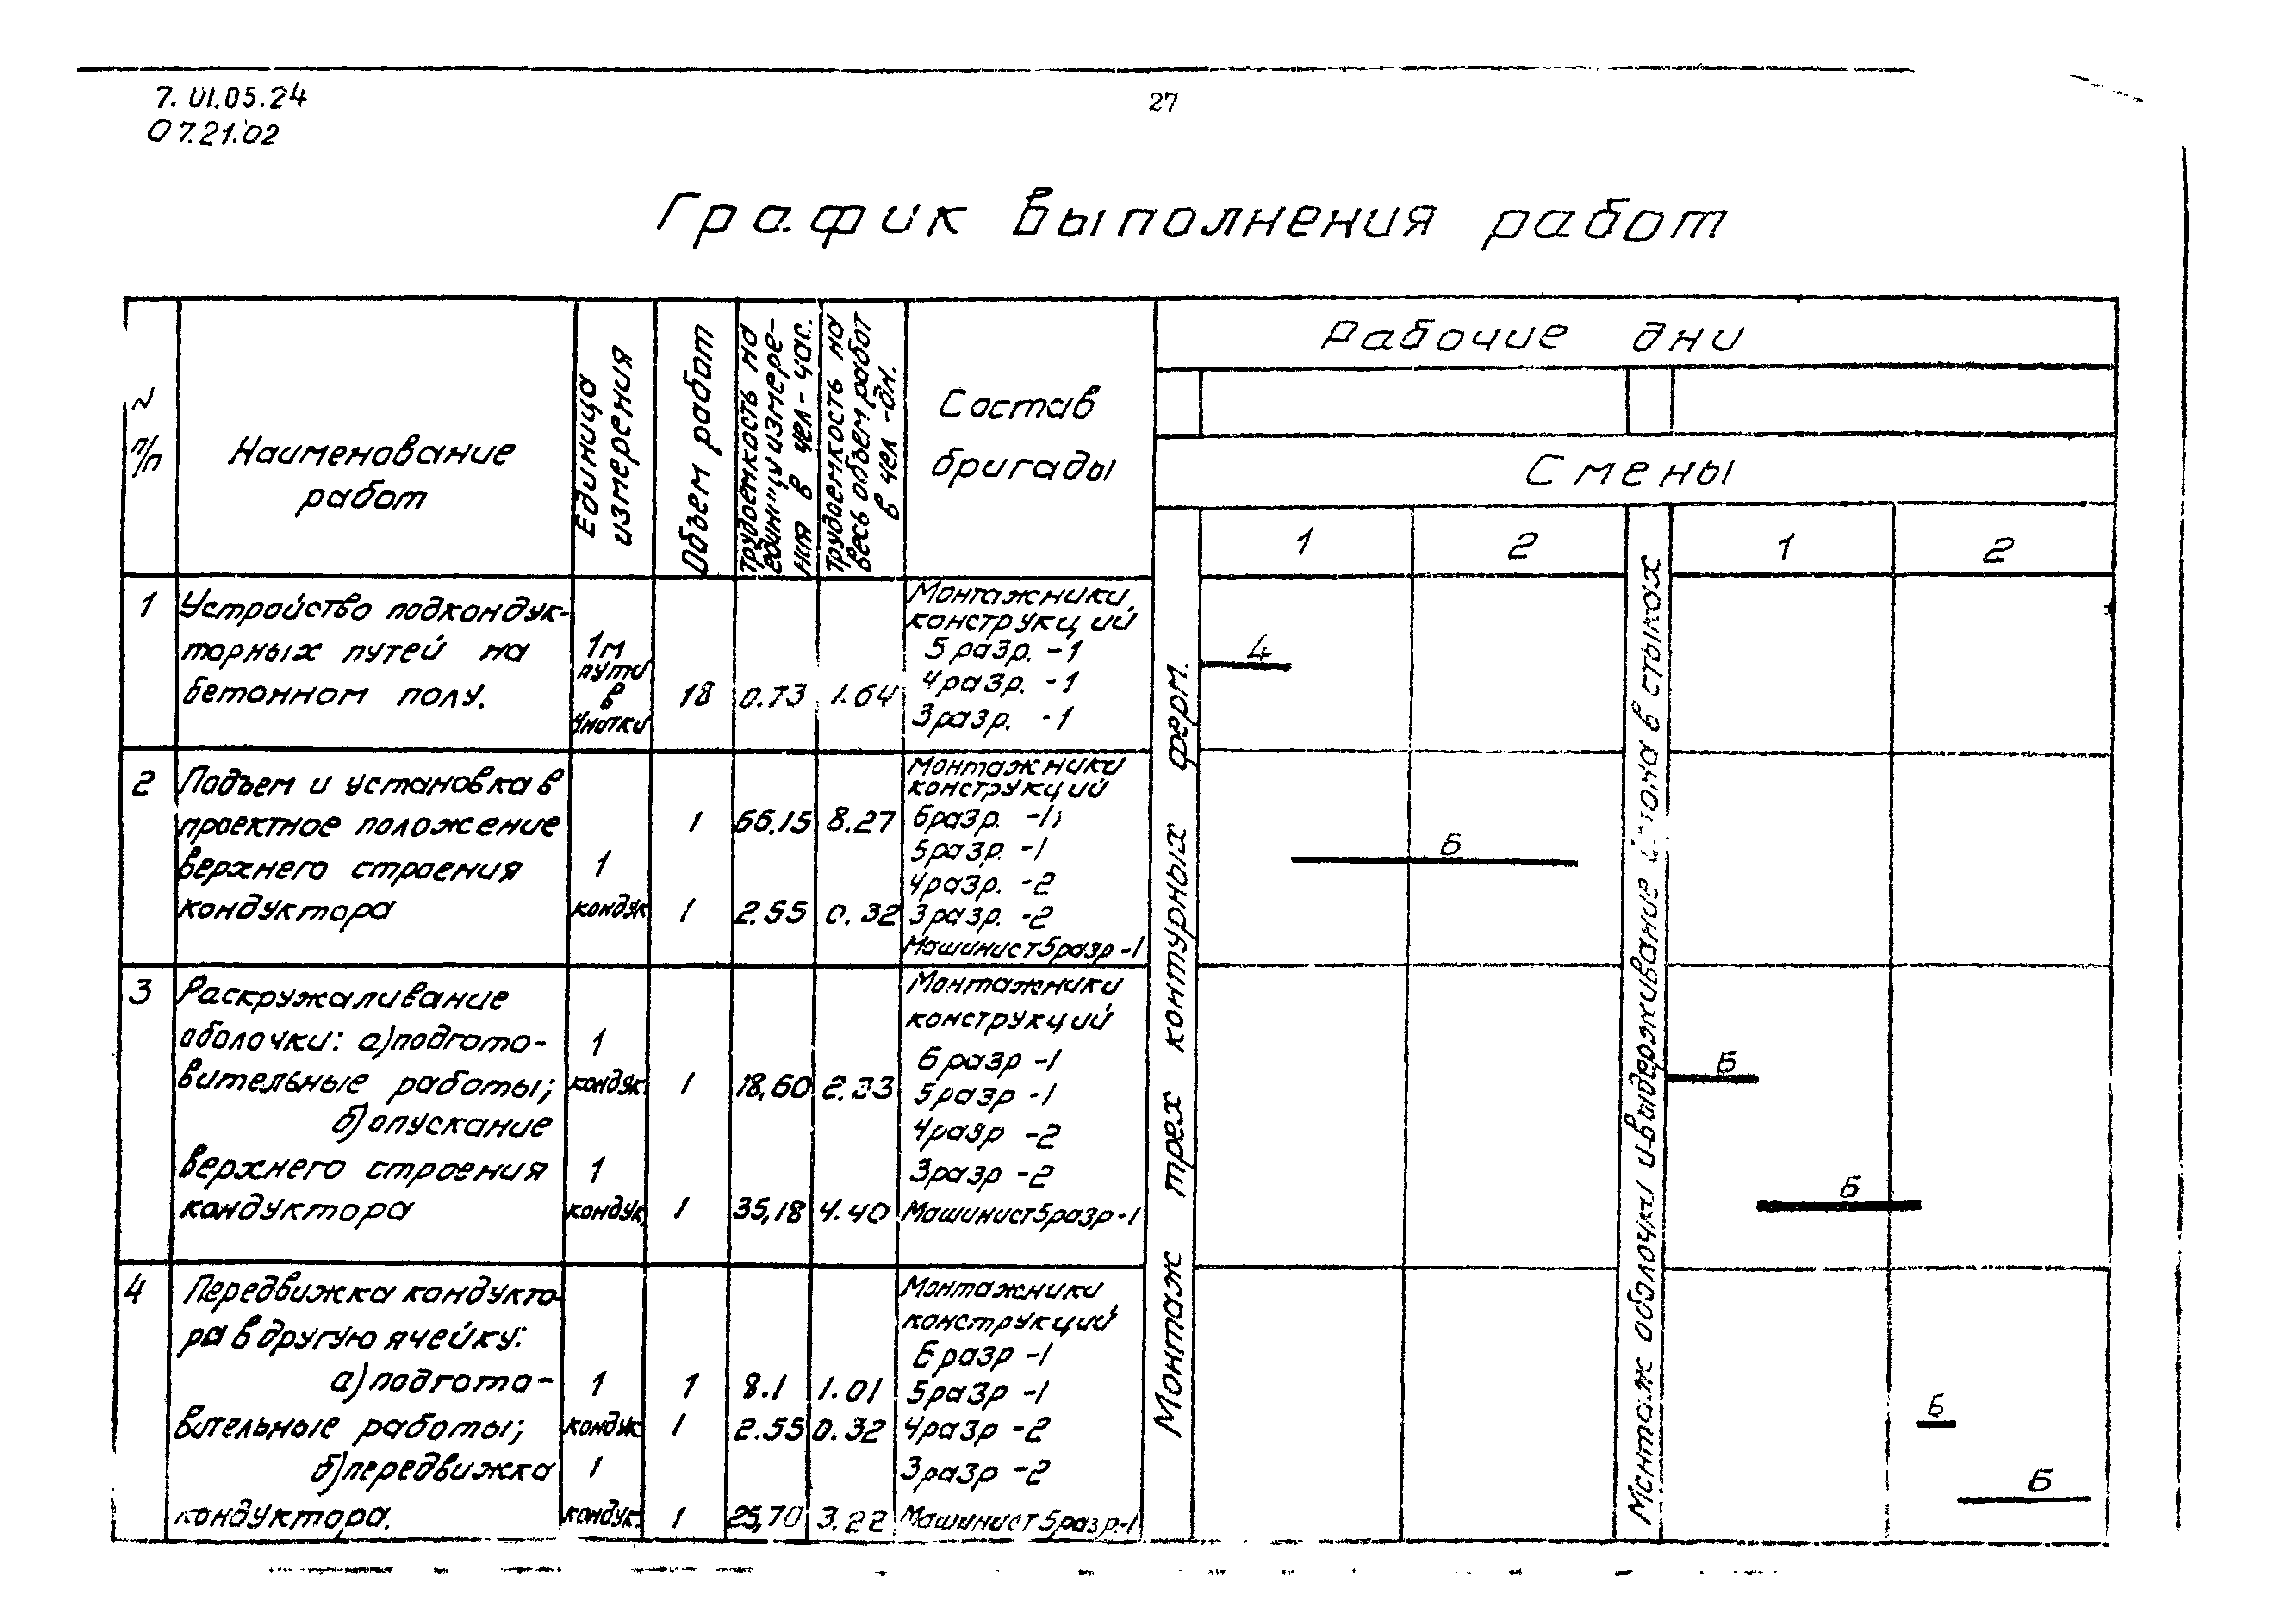 7. 01.05.24
07.21.02
27
График выполнения работ
N
п/п
Наименование
работ
Единица
измерения
Объем работ
Трудоемкость на
единицу измере-
ния в чел-час.
Трудоемкость на
весь объем работ
в чел-дн.
Состав
бригады
Рабочие дни
Смены
1 2 1 2
Монтаж трех контурных ферм.
Монтаж оболочки и выдерживание бетона в стыках
1
Устройство подкондук-
торных путей на
бетонном полу.
1м
пути
в
18 0.73 1.64
Монтажники
конструкций
5 разр. -1
4 разр. -1
3 разр. -1
4
2
Подъем и установка в
проектное положение
верхнего строения
кондуктора
1
кондук
1 66.15 8.27
1 2.55 0.32
Монтажники
конструкций
6 разр. -1
5 разр. -1
4 разр. -2
3 разр. -2
Машинист 5 разр -1
6
3
Раскружаливание
оболочки: а) подгото-
вительные работы;
б) опускание
верхнего строения
кондуктора
1
кондук.
1
кондук
1 18,60 2.33
1 35,18 4.40
Монтажники
конструкций
6 разр -1
5 разр -1
4 разр -2
3 разр -2
Машинист 5 разр -1
6
6
4
Передвижка кондукто-
ра в другую ячейку:
а) подгото-
вительные работы;
б) передвижка
кондуктора.
1
кондук
1
кондук.
1 8.1 1.01
1 2.55 0.32
1 25,70 3.22
Монтажники
конструкций
6 разр -1
5 разр -1
4 разр -2
3 разр -2
Машинист 5 разр.-1
6
6